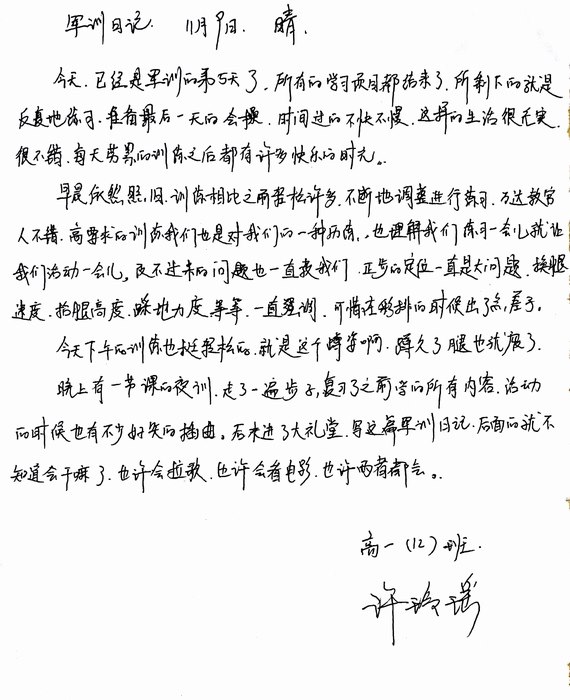 军训日记. 11月9日. 晴.
今天.已经是军训的第5天了,所有的学习项目都结束了,所剩下的就是
反复地练习.准备最后一天的会操.时间过的不快不慢.这样的生活很充实.
很不错.每天劳累的训练之后都有许多快乐的时光。
早晨依然照旧.训练相比之前轻松许多.不断地调整进行练习.不过教官
人不错.高要求的训练我们也是对我们的一种历练.,也理解我们练习一会儿就让
我们活动一会儿.反不过来的问题也一直教我们.正步的定位一直是大问题.换腿
速度.抬腿高度.踩地力度.等等.一直强调.可惜在彩排的时候出了点差子.
今天下午的训练也挺轻松的.就是这个蹲姿啊.蹲久了腿也就废了.
晚上有一节课的夜训.走了一遍步子,复习了之前学的所有内容.活动
的时候也有不少好笑的插曲。后来进了大礼堂.写这篇军训日记.后面的就不
知道会干嘛了.也许会拉歌.也许会看电影.也许两者都会。.
高一(12)班.
许玲瑶